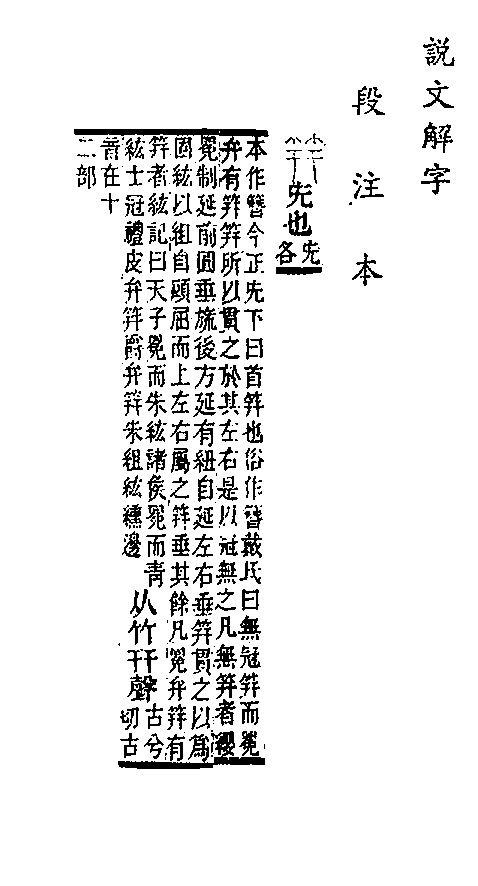 説文解字
段注本
兂也
兂
各
本作簪今正兂下曰首笄也俗作簪戴氏曰無冠笄而冕
弁有笄笄所以貫之於其左右是以冠無之凡無笄者纓
冕制延前圓垂旒後方延有紐自延左右垂笄貫之以爲
固紘以組自頤屈而上左右屬之笄垂其餘凡冕弁笄有
笄者紘記曰天子冕而朱紘諸侯冕而靑
紘士冠禮皮弁笄爵弁笄朱組紘纁邊
从竹幵聲
古兮
切古
音在十
二部